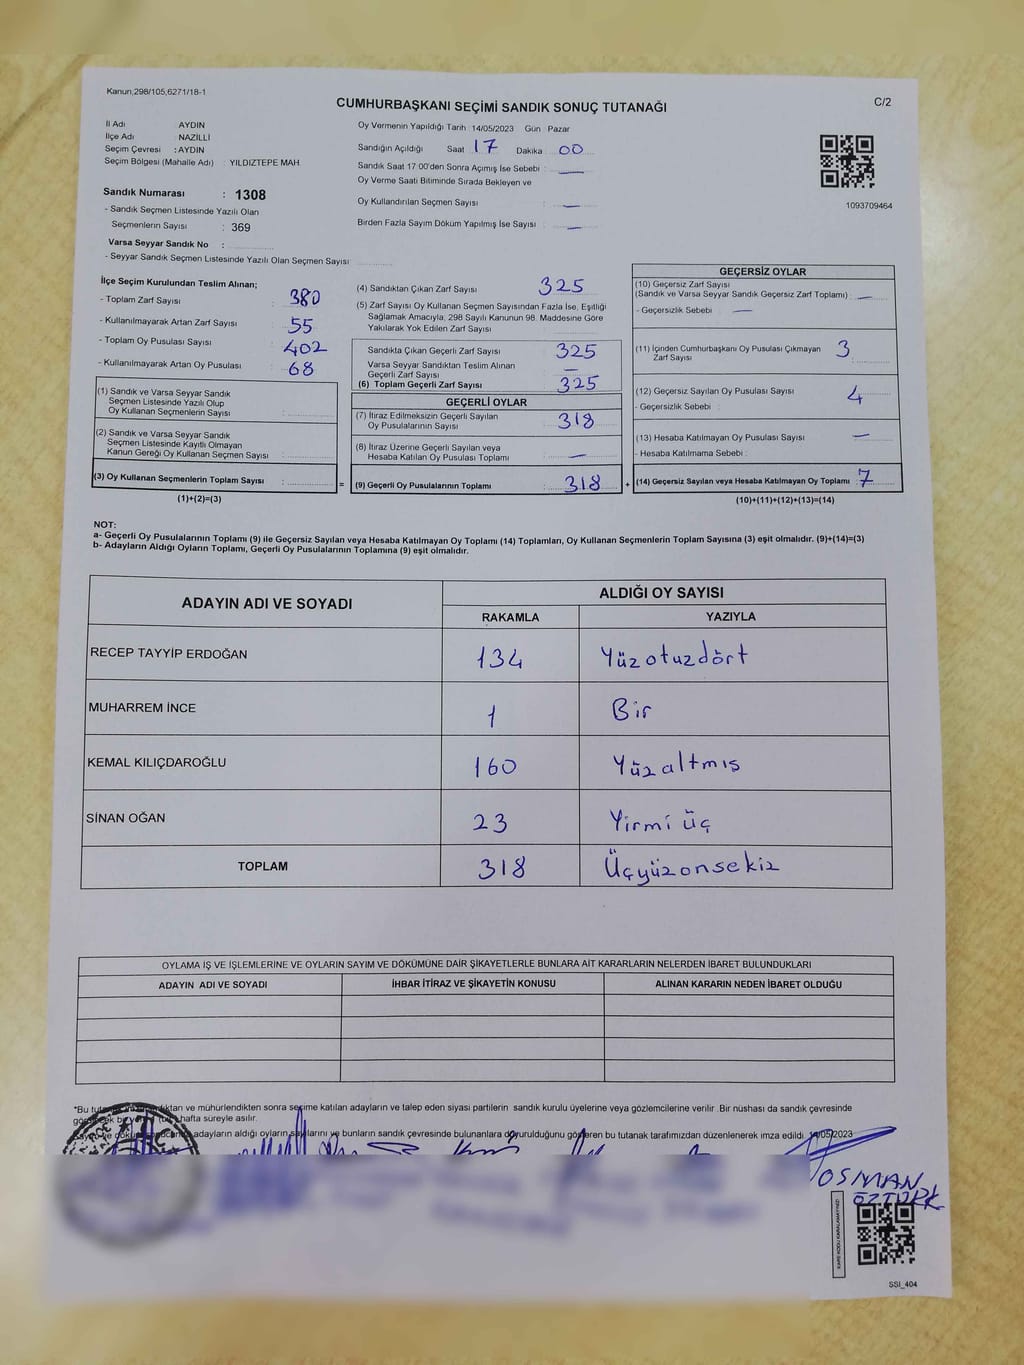 Kanun,298/105,6271/18-1
CUMHURBAŞKANI SEÇİMİ SANDIK SONUÇ TUTANAĞI
C/2
İl Adı : AYDIN
İlçe Adı : NAZİLLİ
Seçim Çevresi : AYDIN
Seçim Bölgesi (Mahalle Adı) : YILDIZTEPE MAH.
Sandık Numarası : 1308
- Sandık Seçmen Listesinde Yazılı Olan
Seçmenlerin Sayısı : 369
Varsa Seyyar Sandık No :
- Seyyar Sandık Seçmen Listesinde Yazılı Olan Seçmen Sayısı
Oy Vermenin Yapıldığı Tarih 14/05/2023 Gün Pazar
Sandığın Açıldığı Saat 17 Dakika 00
Sandık Saat 17:00'den Sonra Açımış İse Sebebi : —
Oy Verme Saati Bitiminde Sırada Bekleyen ve
Oy Kullandırılan Seçmen Sayısı : —
Birden Fazla Sayım Döküm Yapılmış İse Sayısı : —
1093709464
İlçe Seçim Kurulundan Teslim Alınan;
- Toplam Zarf Sayısı : 380
- Kullanılmayarak Artan Zarf Sayısı : 55
- Toplam Oy Pusulası Sayısı : 402
- Kullanılmayarak Artan Oy Pusulası : 68
(1) Sandık ve Varsa Seyyar Sandık
Seçmen Listesinde Yazılı Olup
Oy Kullanan Seçmenlerin Sayısı :
(2) Sandık ve Varsa Seyyar Sandık
Seçmen Listesinde Kayıtlı Olmayan
Kanun Gereği Oy Kullanan Seçmen Sayısı :
(3) Oy Kullanan Seçmenlerin Toplam Sayısı :
(1)+(2)=(3)
=
(4) Sandıktan Çıkan Zarf Sayısı : 325
(5) Zarf Sayısı Oy Kullanan Seçmen Sayısından Fazla İse, Eşitliği
Sağlamak Amacıyla, 298 Sayılı Kanunun 98. Maddesine Göre
Yakılarak Yok Edilen Zarf Sayısı
Sandıkta Çıkan Geçerli Zarf Sayısı 325
Varsa Seyyar Sandıktan Teslim Alınan
Geçerli Zarf Sayısı —
(6) Toplam Geçerli Zarf Sayısı 325
GEÇERLİ OYLAR
(7) İtiraz Edilmeksizin Geçerli Sayılan
Oy Pusulalarının Sayısı : 318
(8) İtiraz Üzerine Geçerli Sayılan veya
Hesaba Katılan Oy Pusulası Toplamı : —
(9) Geçerli Oy Pusulalarının Toplamı : 318
+
GEÇERSİZ OYLAR
(10) Geçersiz Zarf Sayısı
(Sandık ve Varsa Seyyar Sandık Geçersiz Zarf Toplamı) : —
- Geçersizlik Sebebi : —
(11) İçinden Cumhurbaşkanı Oy Pusulası Çıkmayan 3
Zarf Sayısı
(12) Geçersiz Sayılan Oy Pusulası Sayısı : 4
- Geçersizlik Sebebi :
(13) Hesaba Katılmayan Oy Pusulası Sayısı : —
- Hesaba Katılmama Sebebi :
(14) Geçersiz Sayılan veya Hesaba Katılmayan Oy Toplamı : 7
(10)+(11)+(12)+(13)=(14)
NOT:
a- Geçerli Oy Pusulalarının Toplamı (9) ile Geçersiz Sayılan veya Hesaba Katılmayan Oy Toplamı (14) Toplamları, Oy Kullanan Seçmenlerin Toplam Sayısına (3) eşit olmalıdır. (9)+(14)=(3)
b- Adayların Aldığı Oyların Toplamı, Geçerli Oy Pusulalarının Toplamına (9) eşit olmalıdır.
ADAYIN ADI VE SOYADI
ALDIĞI OY SAYISI
RAKAMLA YAZIYLA
RECEP TAYYİP ERDOĞAN 134 Yüzotuzdört
MUHARREM İNCE 1 Bir
KEMAL KILIÇDAROĞLU 160 Yüzaltmış
SİNAN OĞAN 23 Yirmi üç
TOPLAM 318 Üçyüzonsekiz
OYLAMA İŞ VE İŞLEMLERİNE VE OYLARIN SAYIM VE DÖKÜMÜNE DAİR ŞİKAYETLERLE BUNLARA AİT KARARLARIN NELERDEN İBARET BULUNDUKLARI
ADAYIN ADI VE SOYADI İHBAR İTİRAZ VE ŞİKAYETİN KONUSU ALINAN KARARIN NEDEN İBARET OLDUĞU
*Bu ve mühürlendikten sonra seçime katılan adayların ve talep eden siyasi partilerin sandık kurulu üyelerine veya gözlemcilerine verilir .Bir nüshası da sandık çevresinde
hafta süreyle asılır.
adayların aldığı oyların sayılarını ve bunların sandık çevresinde bulunanlara duyurulduğunu gösteren bu tutanak tarafımızdan düzenlenerek imza edildi. 14/05/2023
OSMAN
ÖZTÜRK
SSI_404